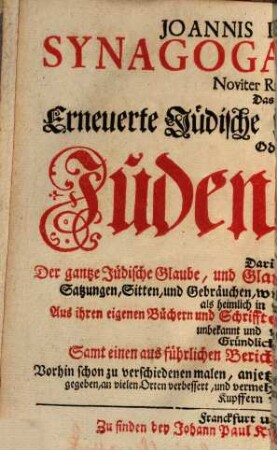 JOANNIS
SYNAGOGA
Noviter
Das
Erneuerte Jüdische
Jüden
Der gantze Jüdische Glaube, und
Satzungen, Sitten, und Gebräuchen,
als heimlich in
Aus ihren eigenen Büchern und
unbekannt und
Samt einen ausführlichen
Vorhin schon zu verschiedenen malen,
gegeben, an vielen Orten verbessert, und
Kupffern
Franckfurt
Zu finden bey Johann Paul